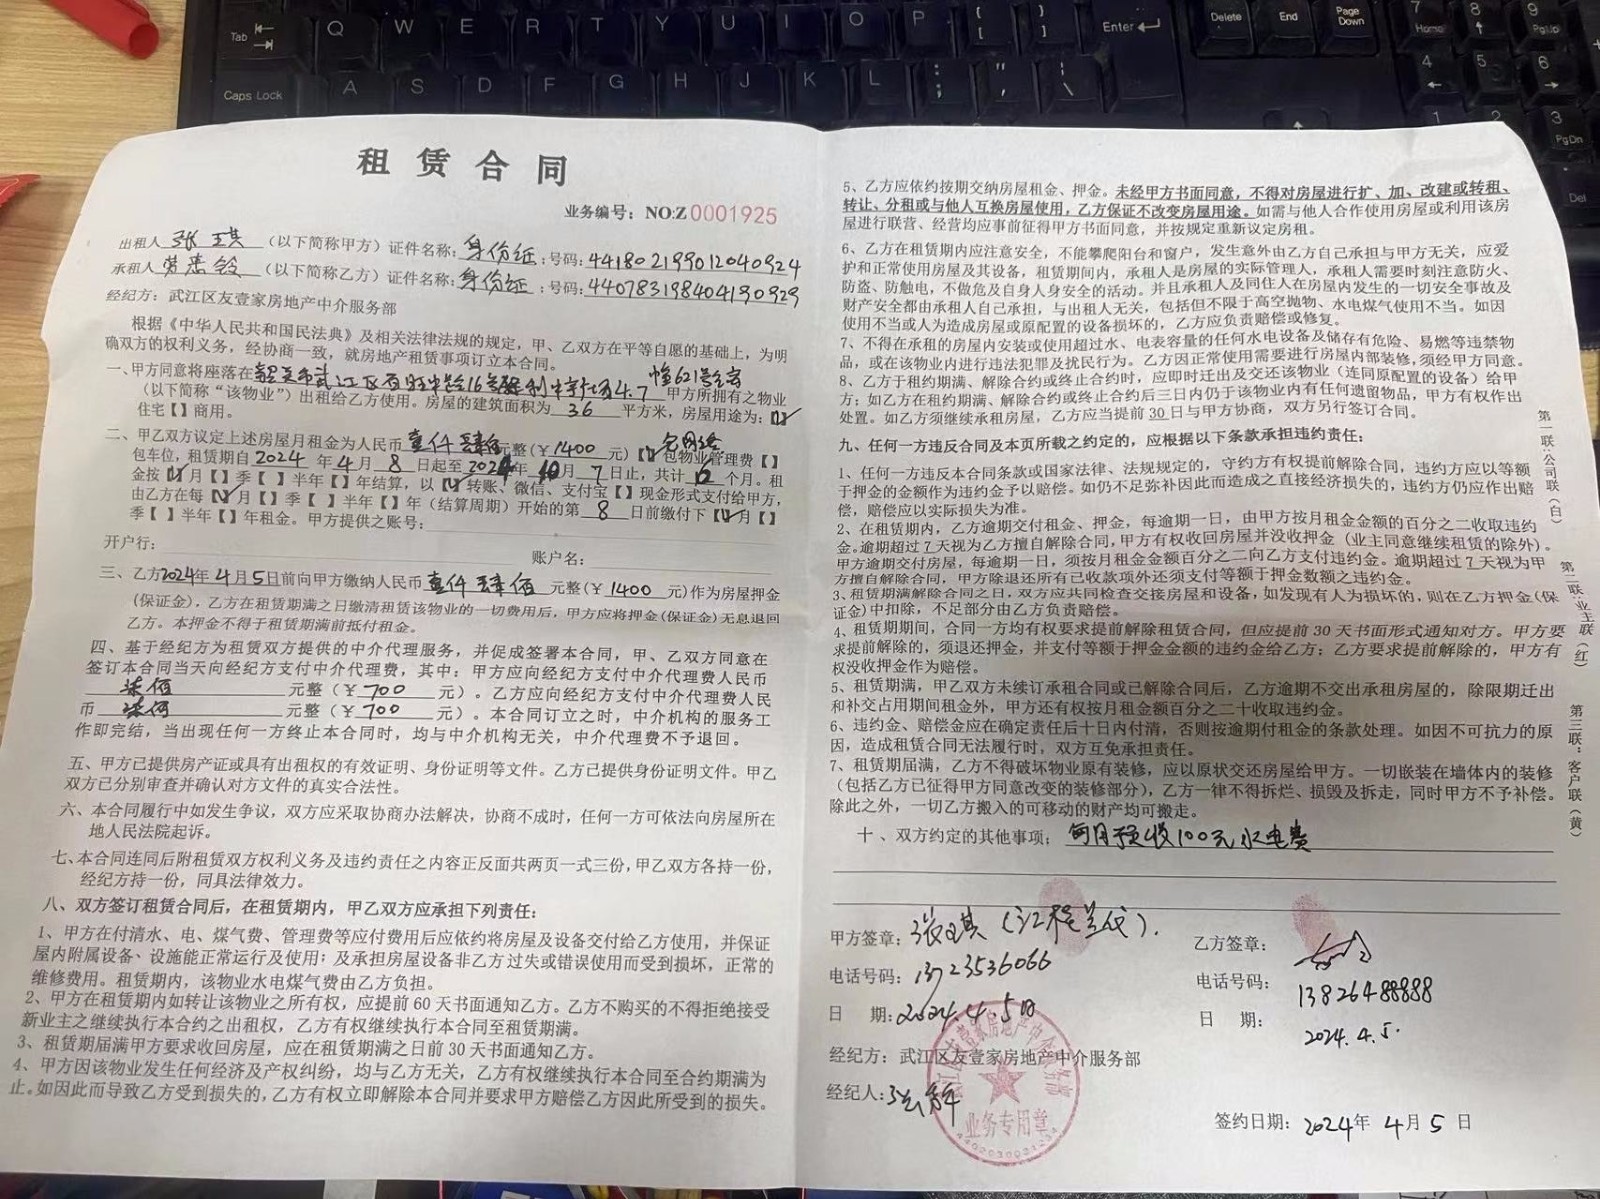 Tab
Q W E R T Y U I O P
{ [
} ]
Enter
Delete
End
Page Down
7 Home
8
9 PgUp
Caps Lock
A S D F G H J K L
: ;
" '
| \
4
5
6
1
2
3 PgDn
Del
租赁合同
业务编号：NO:Z0001925
出租人 张琪 （以下简称甲方）证件名称：身份证：号码：441802199012040924
承租人 （以下简称乙方）证件名称：身份证：号码：440783198404190929
经纪方：武江区友壹家房地产中介服务部
根据《中华人民共和国民法典》及相关法律法规的规定，甲、乙双方在平等自愿的基础上，为明
确双方的权利义务，经协商一致，就房地产租赁事项订立本合同。
一、甲方同意将座落在 韶关市武江区 16号 4.7 幢621号 甲方所拥有之物业
（以下简称“该物业”）出租给乙方使用。房屋的建筑面积为 36 平方米，房屋用途为：【✓】
住宅【】商用。
二、甲乙双方议定上述房屋月租金为人民币 壹仟肆佰 元整（￥1400 元）【✓】包物业管理费【】 包网络
包车位，租赁期自2024 年 4 月 8 日起至 2024 年 10 月 7 日止，共计 6 个月。租
金按【✓】月【】季【】半年【】年结算，以【✓】转账、微信、支付宝【】现金形式支付给甲方，
由乙方在每【✓】月【】季【】半年【】年（结算周期）开始的第 8 日前缴付下【✓】月【】
季【】半年【】年租金。甲方提供之账号：
开户行： 账户名：
三、乙方2024年4月5日前向甲方缴纳人民币 壹仟肆佰 元整（￥1400 元）作为房屋押金
（保证金），乙方在租赁期满之日缴清租赁该物业的一切费用后，甲方应将押金（保证金）无息退回
乙方。本押金不得于租赁期满前抵付租金。
四、基于经纪方为租赁双方提供的中介代理服务，并促成签署本合同，甲、乙双方同意在
签订本合同当天向经纪方支付中介代理费，其中：甲方应向经纪方支付中介代理费人民币
柒佰 元整（￥700 元）。乙方应向经纪方支付中介代理费人民
币 柒佰 元整（￥700 元）。本合同订立之时，中介机构的服务工
作即完结，当出现任何一方终止本合同时，均与中介机构无关，中介代理费不予退回。
五、甲方已提供房产证或具有出租权的有效证明、身份证明等文件。乙方已提供身份证明文件。甲乙
双方已分别审查并确认对方文件的真实合法性。
六、本合同履行中如发生争议，双方应采取协商办法解决，协商不成时，任何一方可依法向房屋所在
地人民法院起诉。
七、本合同连同后附租赁双方权利义务及违约责任之内容正反面共两页一式三份，甲乙双方各持一份，
经纪方持一份，同具法律效力。
八、双方签订租赁合同后，在租赁期内，甲乙双方应承担下列责任：
1、甲方在付清水、电、煤气费、管理费等应付费用后应依约将房屋及设备交付给乙方使用，并保证
屋内附属设备、设施能正常运行及使用；及承担房屋设备非乙方过失或错误使用而受到损坏，正常的
维修费用。租赁期内，该物业水电煤气费由乙方负担。
2、甲方在租赁期内如转让该物业之所有权，应提前 60 天书面通知乙方。乙方不购买的不得拒绝接受
新业主之继续执行本合约之出租权，乙方有权继续执行本合同至租赁期满。
3、租赁期届满甲方要求收回房屋，应在租赁期满之日前 30 天书面通知乙方。
4、甲方因该物业发生任何经济及产权纠纷，均与乙方无关，乙方有权继续执行本合同至合约期满为
止。如因此而导致乙方受到损失的，乙方有权立即解除本合同并要求甲方赔偿乙方因此所受到的损失。
5、乙方应依约按期交纳房屋租金、押金。未经甲方书面同意，不得对房屋进行扩、加、改建或转租、
转让、分租或与他人互换房屋使用，乙方保证不改变房屋用途。如需与他人合作使用房屋或利用该房
屋进行联营、经营均应事前征得甲方书面同意，并按规定重新议定房租。
6、乙方在租赁期内应注意安全，不能攀爬阳台和窗户，发生意外由乙方自己承担与甲方无关，应爱
护和正常使用房屋及其设备，租赁期间内，承租人是房屋的实际管理人，承租人需要时刻注意防火、
防盗、防触电，不做危及自身人身安全的活动。并且承租人及同住人在房屋内发生的一切安全事故及
财产安全都由承租人自己承担，与出租人无关，包括但不限于高空抛物、水电煤气使用不当。如因
使用不当或人为造成房屋或原配置的设备损坏的，乙方应负责赔偿或修复。
7、不得在承租的房屋内安装或使用超过水、电表容量的任何水电设备及储存有危险、易燃等违禁物
品，或在该物业内进行违法犯罪及扰民行为。乙方因正常使用需要进行房屋内部装修，须经甲方同意。
8、乙方于租赁期满、解除合约或终止合约时，应即时迁出及交还该物业（连同原配置的设备）给甲
方；如乙方在租约期满、解除合约或终止合约后三日内仍于该物业内有任何遗留物品，甲方有权作出
处置。如乙方须继续承租房屋，乙方应当提前 30 日与甲方协商，双方另行签订合同。
九、任何一方违反合同及本页所载之约定的，应根据以下条款承担违约责任：
1、任何一方违反本合同条款或国家法律、法规规定的，守约方有权提前解除合同，违约方应以等额
于押金的金额作为违约金予以赔偿。如仍不足弥补因此而造成之直接经济损失的，违约方仍应作出赔
偿，赔偿应以实际损失为准。
2、在租赁期内，乙方逾期交付租金、押金，每逾期一日，由甲方按月租金金额的百分之二收取违约
金。逾期超过 7 天视为乙方擅自解除合同，甲方有权收回房屋并没收押金（业主同意继续租赁的除外）。
甲方逾期交付房屋，每逾期一日，须按月租金金额百分之二向乙方支付违约金。逾期超过 7 天视为甲
方擅自解除合同，甲方除退还所有已收款项外还须支付等额于押金数额之违约金。
3、租赁期满解除合同之日，双方应共同检查交接房屋和设备，如发现有人为损坏的，则在乙方押金（保
证金）中扣除，不足部分由乙方负责赔偿。
4、租赁期期间，合同一方均有权要求提前解除租赁合同，但应提前 30 天书面形式通知对方。甲方要
求提前解除的，须退还押金，并支付等额于押金金额的违约金给乙方；乙方要求提前解除的，甲方有
权没收押金作为赔偿。
5、租赁期满，甲乙双方未续订承租合同或已解除合同后，乙方逾期不交出承租房屋的，除限期迁出
和补交占用期间租金外，甲方还有权按月租金额百分之二十收取违约金。
6、违约金、赔偿金应在确定责任后十日内付清，否则按逾期付租金的条款处理。如因不可抗力的原
因，造成租赁合同无法履行时，双方互免承担责任。
7、租赁期届满，乙方不得破坏物业原有装修，应以原状交还房屋给甲方。一切嵌装在墙体内的装修
（包括乙方已征得甲方同意改变的装修部分），乙方一律不得拆烂、损毁及拆走，同时甲方不予补偿。
除此之外，一切乙方搬入的可移动的财产均可搬走。
十、双方约定的其他事项：每月预收100元水电费
甲方签章：张琪（江程兰代）.
电话号码：13723536066
日 期：2024.4.5日
经纪方：武江区友壹家房地产中介服务部
经纪人：
乙方签章：
电话号码：13826488888
日 期：2024.4.5.
签约日期：2024年 4月 5日
业务专用章
第一联：公司联（白）
第二联：业主联（红）
第三联：客户联（黄）